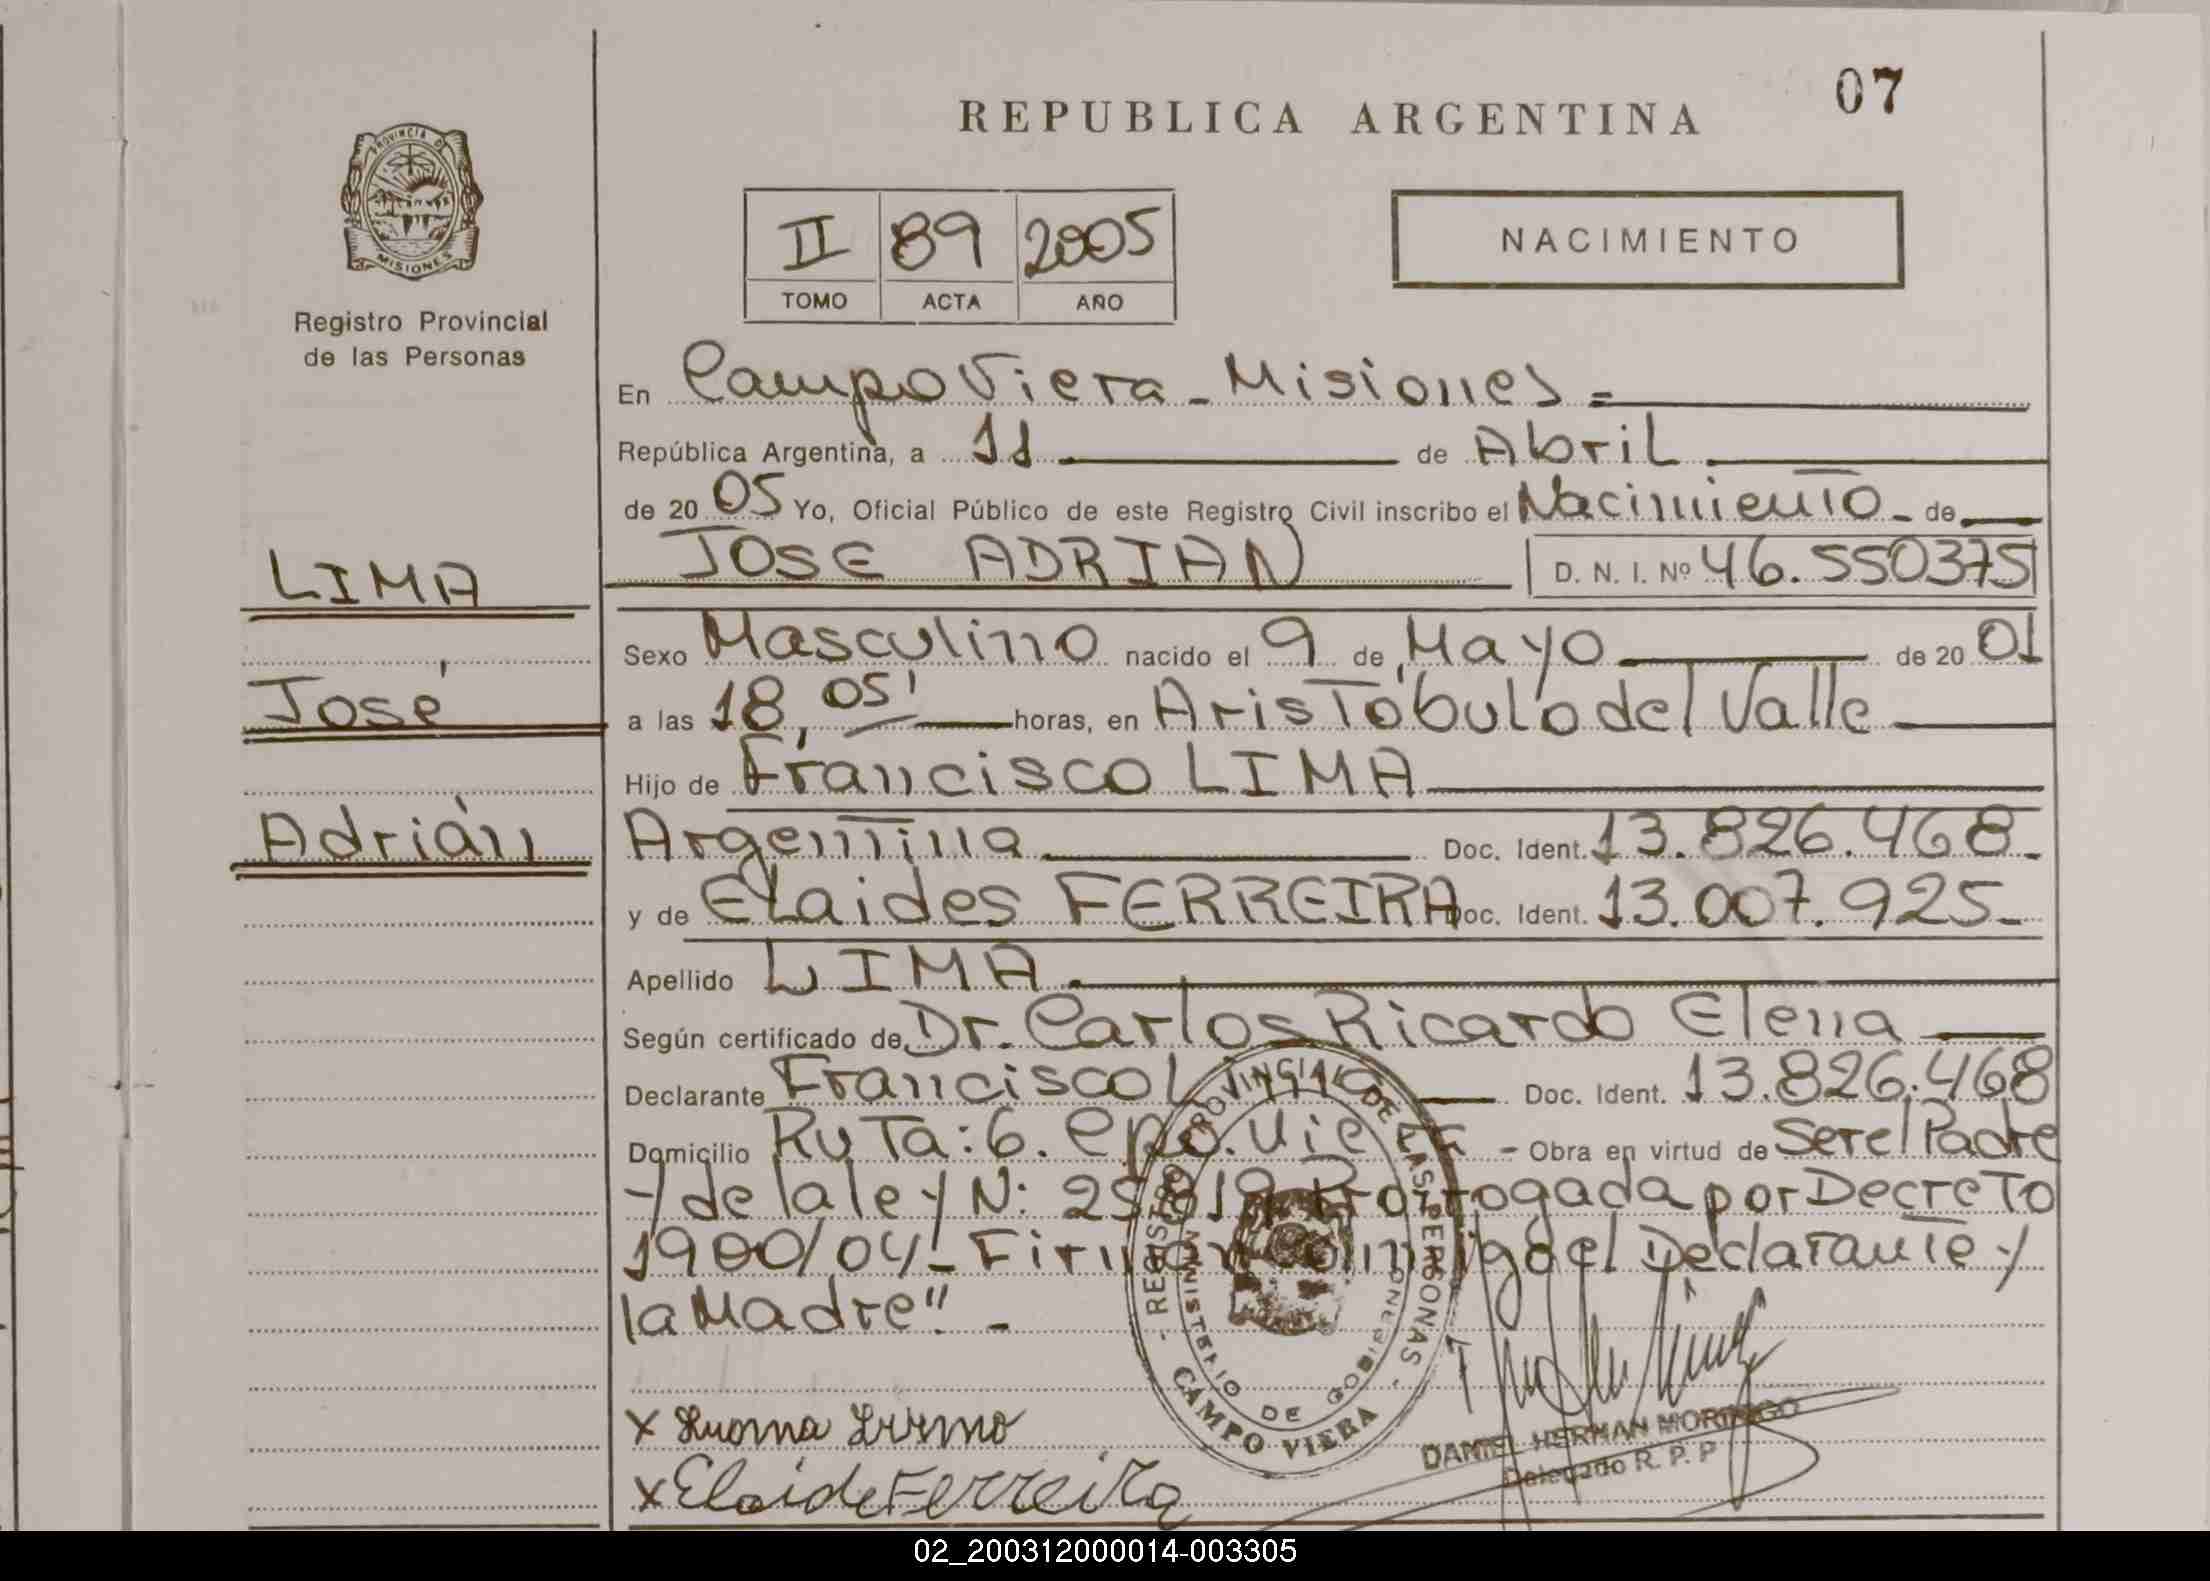 REPUBLICA ARGENTINA
07
PROVINCIA DE
MISIONES
Registro Provincial
de las Personas
II 89 2005
TOMO ACTA AÑO
NACIMIENTO
En Campo Viera - Misiones =
República Argentina, a 11 de Abril
de 20 05 Yo, Oficial Público de este Registro Civil inscribo el Nacimiento - de
JOSE ADRIAN D. N. I. Nº 46.550375
LIMA
José
Adrián
Sexo Masculino nacido el 9 de Mayo de 20 01
a las 18, 05' horas, en Aristóbulo del Valle
Hijo de Francisco LIMA
Argentina Doc. Ident. 13.826.468-
y de ELaides FERREIRA Doc. Ident. 13.007.925-
Apellido LIMA
Según certificado de Dr. Carlos Ricardo Elena
Declarante Francisco Lima Doc. Ident. 13.826.468
Domicilio Ruta: 6. Cpo. Viera - Obra en virtud de Ser el Padre
y de la ley N: 25.819 Prorrogada por Decreto
1900/04 - Firman conmigo el Declarante y
la Madre" -
REGISTRO PROVINCIAL DE LAS PERSONAS
MINISTERIO DE GOBIERNO
CAMPO VIERA
DANIEL HERNAN MORINIGO
Delegado R. P. P
x
x Elaide Ferreira
02_200312000014-003305